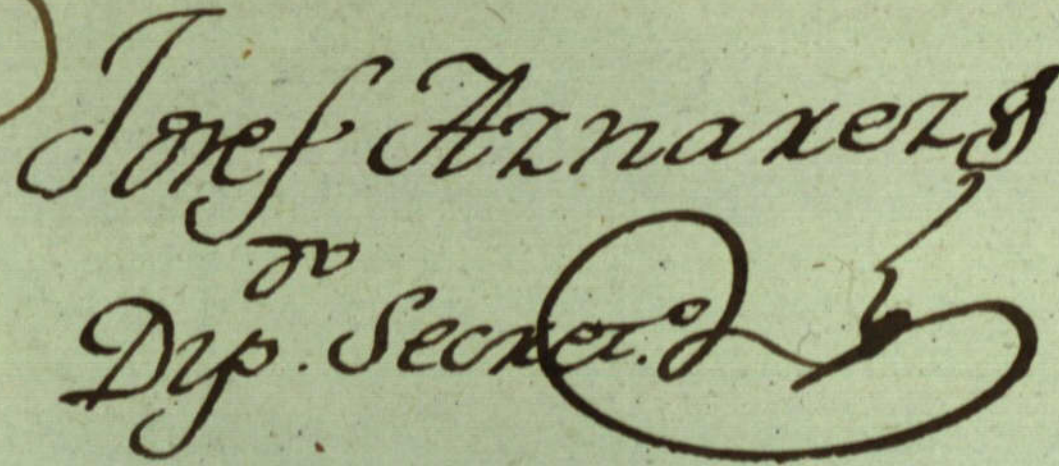 Josef Aznarez
Dip.ᵈᵒ Secret.º